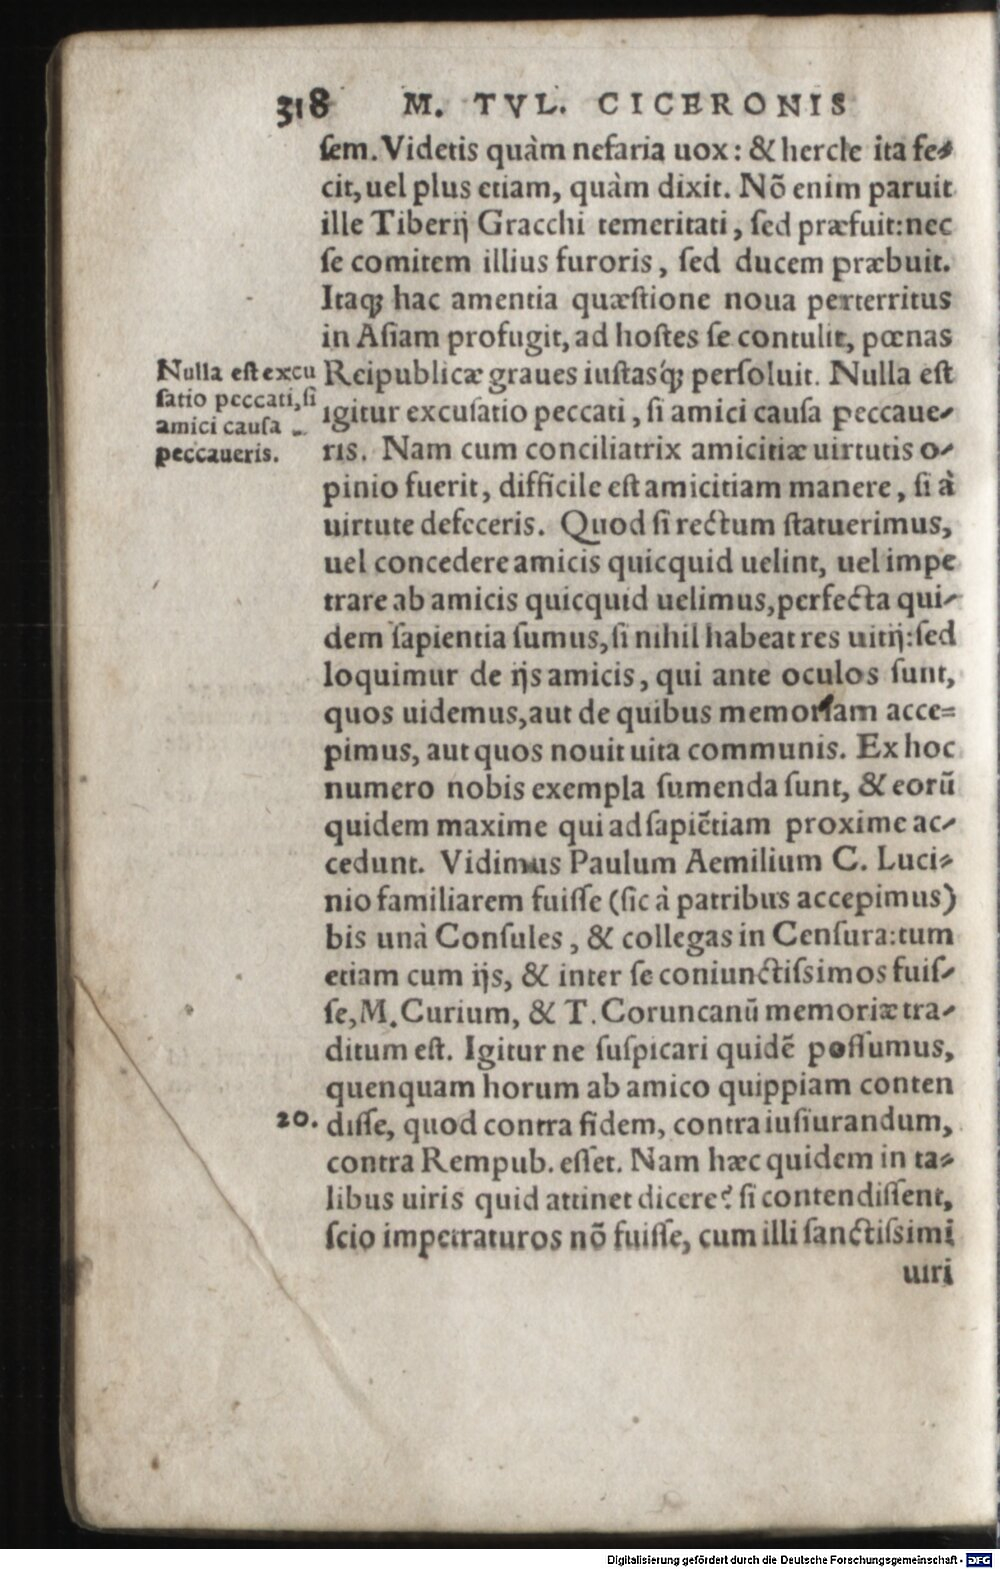 318 M. TVL. CICERONIS
ſem. Videtis quàm nefaria uox: & hercle ita fe-
cit, uel plus etiam, quàm dixit. Nõ enim paruit
ille Tiberij Gracchi temeritati, ſed præfuit: nec
ſe comitem illius furoris, ſed ducem præbuit.
Itaq; hac amentia quæſtione noua perterritus
in Aſiam profugit, ad hoſtes ſe contulit, pœnas
Reipublicæ graues iuſtasq́; perſoluit. Nulla eſt
igitur excuſatio peccati, ſi amici cauſa peccaue-
ris. Nam cum conciliatrix amicitiæ uirtutis o-
pinio fuerit, difficile eſt amicitiam manere, ſi à
uirtute defeceris. Quod ſi rectum ſtatuerimus,
uel concedere amicis quicquid uelint, uel impe
trare ab amicis quicquid uelimus, perfecta qui-
dem ſapientia ſumus, ſi nihil habeat res uitij: ſed
loquimur de ijs amicis, qui ante oculos ſunt,
quos uidemus, aut de quibus memoriam acce=
pimus, aut quos nouit uita communis. Ex hoc
numero nobis exempla ſumenda ſunt, & eorũ
quidem maxime qui ad ſapiẽtiam proxime ac-
cedunt. Vidimus Paulum Aemilium C. Luci-
nio familiarem fuiſſe (ſic à patribus accepimus)
bis unà Conſules, & collegas in Cenſura: tum
etiam cum ijs, & inter ſe coniunctiſsimos fuiſ-
ſe, M. Curium, & T. Coruncanũ memoriæ tra-
ditum eſt. Igitur ne ſuſpicari quidẽ poſſumus,
quenquam horum ab amico quippiam conten
diſſe, quod contra fidem, contra iuſiurandum,
contra Rempub. eſſet. Nam hæc quidem in ta-
libus uiris quid attinet dicere? ſi contendiſſent,
ſcio impetraturos nõ fuiſſe, cum illi ſanctiſsimi
uiri
Nulla eſt excu
ſatio peccati, ſi
amici cauſa
peccaueris.
20.
Digitalisierung gefördert durch die Deutsche Forschungsgemeinschaft - DFG